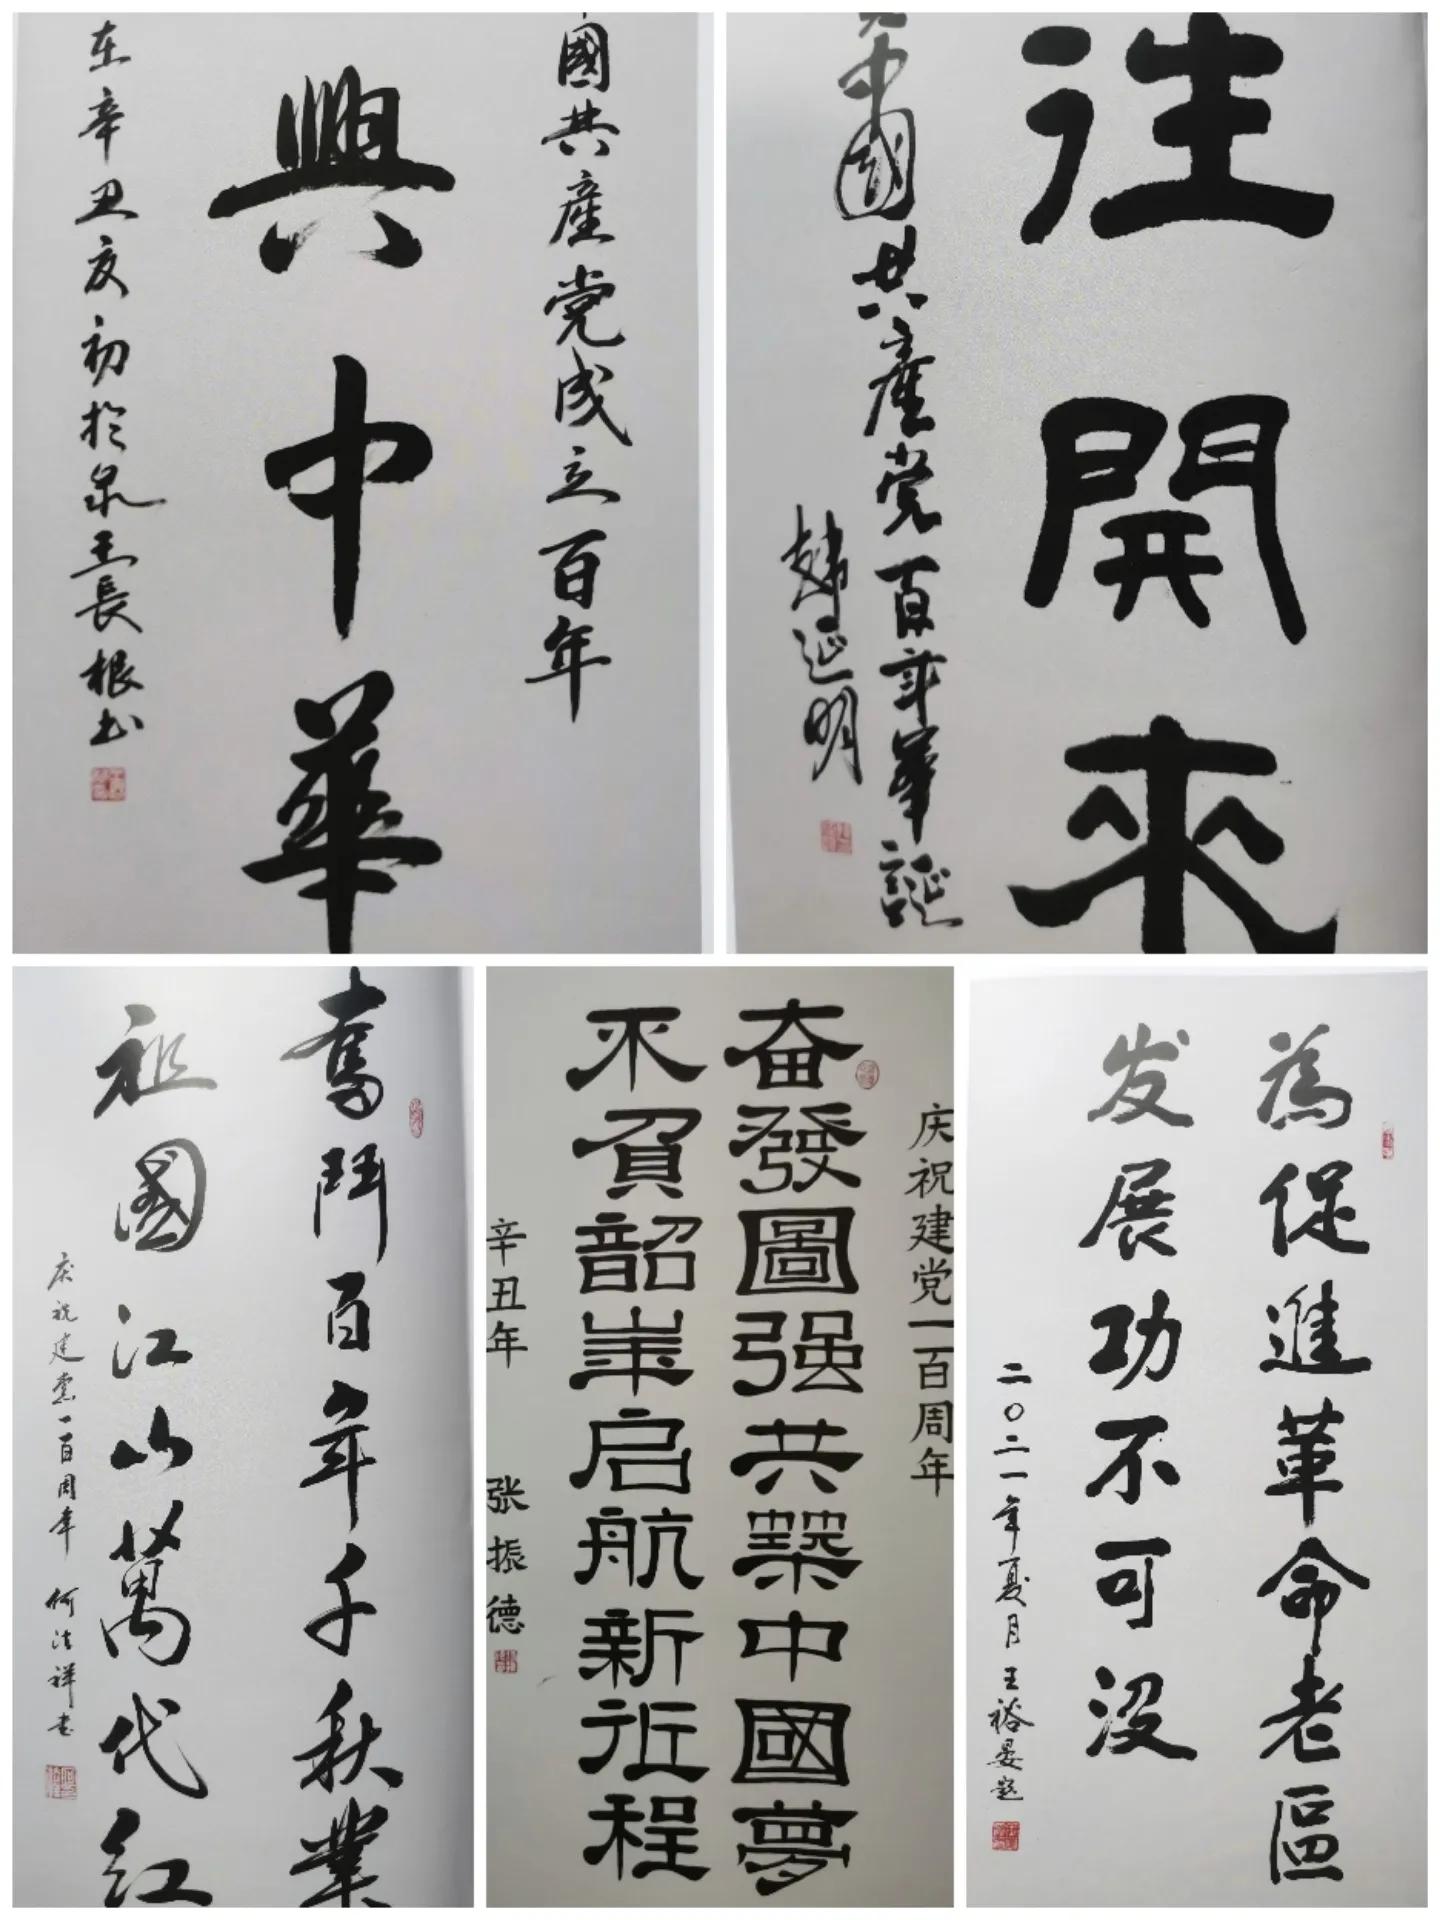 國共產党成立百年
興中華
在辛丑夏初於泉王長根书
往開來
中國共產党百年華誕
韩延明
奮鬥百年千秋業
祖國江山萬代红
庆祝建党一百周年 何法祥书
庆祝建党一百周年
奋發圖强共築中國夢
不負韶華启航新征程
辛丑年 张振德
為促進革命老區
发展功不可没
二〇二一年夏月王裕晏题